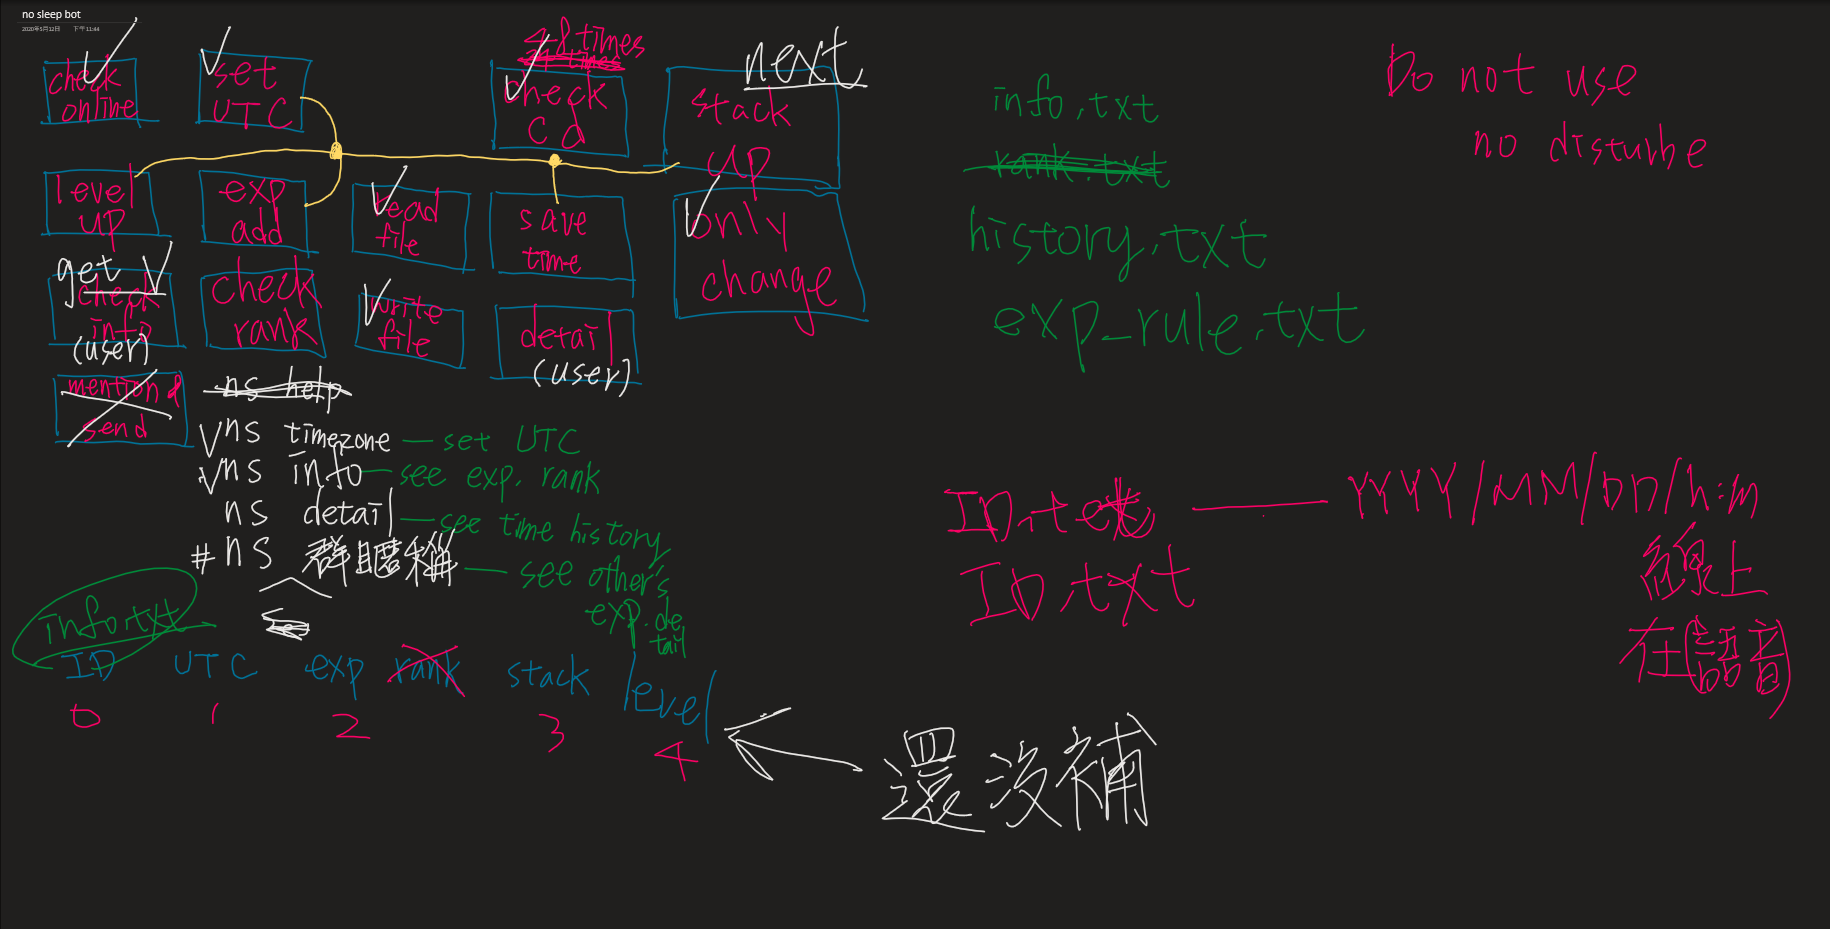 no sleep bot
2020年5月12日 下午 11:44
check
online
set
UTC
48 times
check
cd
next
stack
up
level
up
exp
add
read
file
save
time
only
change
get
check
info
(user)
check
rank
write
file
detail
(user)
mention &
send
ns help
ns timezone — set UTC
ns info — see exp. rank
ns detail — see time history
#ns 群暱稱 — see other's
exp. de
tail
info.txt
ID UTC exp rank stack level
0 1 2 3 4
還沒補
info.txt
rank.txt
history.txt
exp_rule.txt
Do not use
no disturbe
ID.txt
YYYY/MM/DD/h:m
線上
在(語音)